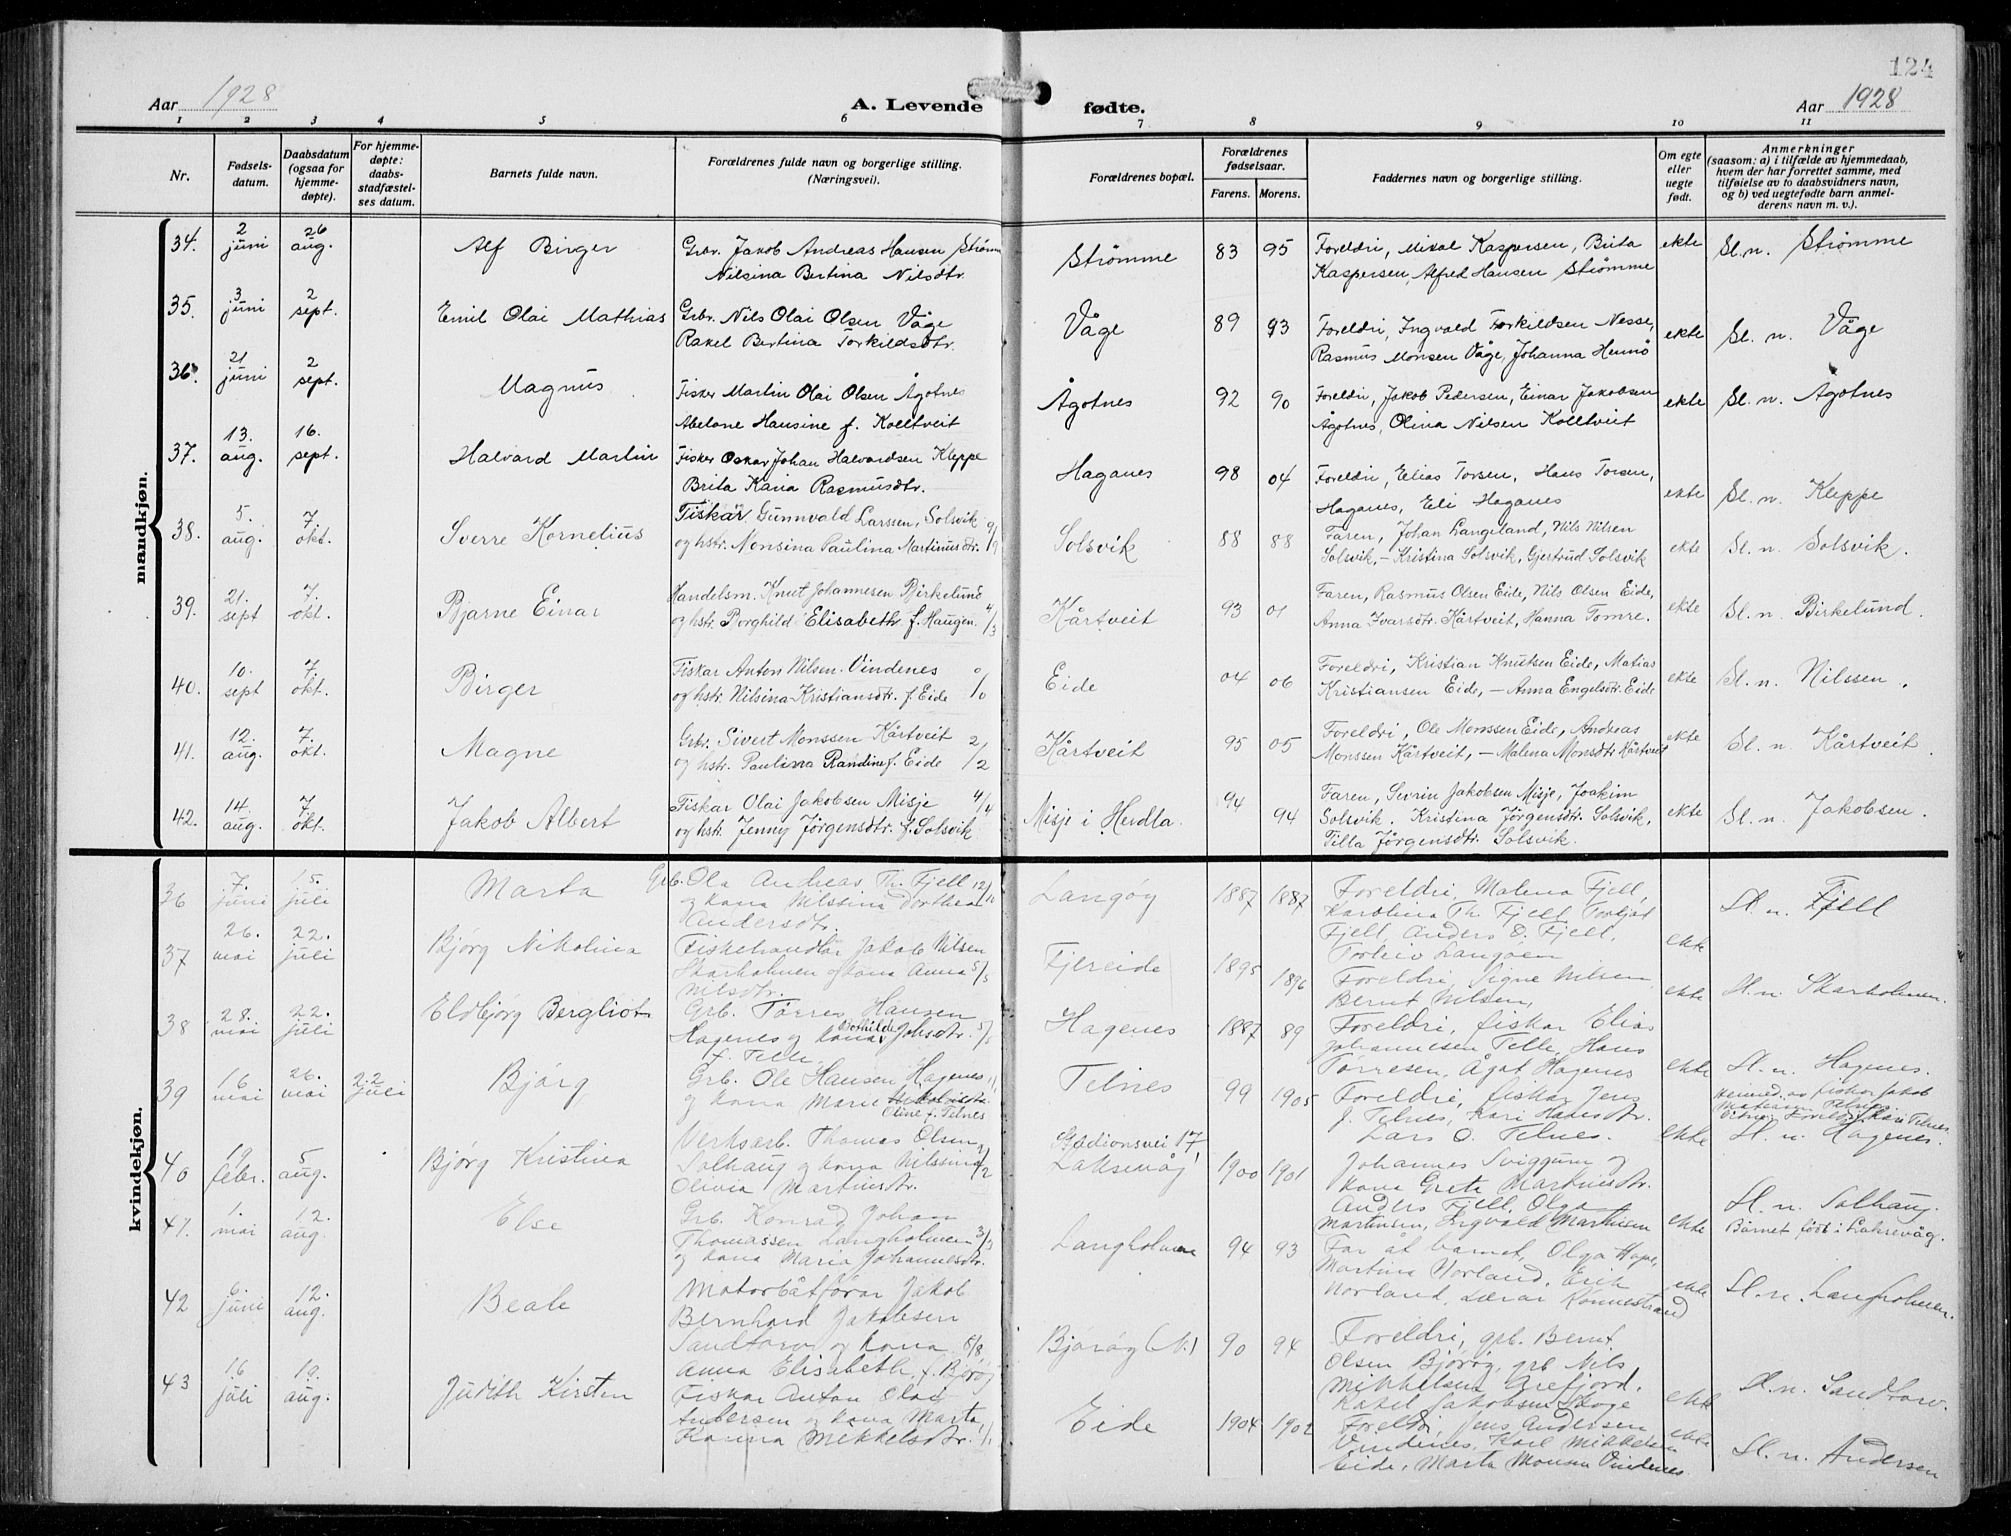 124
Aar 1928
A. Levende fødte.
Aar 1928
1 2 3 4 5 6 7 8 9 10 11
Nr.
Fødsels-
datum.
Daabsdatum
(ogsaa for
hjemme-
døpte).
For hjemme-
døpte:
daabs-
stadfæstel-
ses datum.
Barnets fulde navn.
Forældrenes fulde navn og borgerlige stilling.
(Næringsvei).
Forældrenes bopæl.
Forældrenes
fødselsaar.
Farens. Morens.
Faddernes navn og borgerlige stilling.
Om egte
eller
uegte
født.
Anmerkninger
(saasom: a) i tilfælde av hjemmedaab,
hvem der har forrettet samme, med
tilføielse av to daabsvidners navn,
og b) ved uegtefødte barn anmel-
derens navn m. v.).
mandkjøn.
34. 2 juni 26 aug. Alf Birger Grbr. Jakob Andreas Hansen Strømme Strømme 83 95 Foreldri, Mikal Kaspersen, Brita ekte Sl. n. Strømme
Nilsina Bertina Nilsdtr. Kaspersen, Alfred Hansen Strømme
35. 3 juni 2 sept. Emil Olai Mathias Grbr. Nils Olai Olsen Våge Våge 89 93 Foreldri, Ingvald Torkildsen Nesse, ekte Sl. n. Våge
Rakel Bertina Torkildsdtr. Rasmus Monsen Våge, Johanna Hennø
36. 21 juni 2 sept. Magnus Fisker Martin Olai Olsen Ågotnes Ågotnes 92 90 Foreldri, Jakob Pedersen, Einar Jakobsen ekte Sl. n. Ågotnes
Abelone Hansine f. Kolltveit Ågotnes, Olina Nilsen Kolltveit
37. 13. aug. 16. sept. Halvard Martin Fisker Oskar Johan Halvardsen Kleppe Haganes 98 04 Foreldri, Elias Torsen, Hans Torsen, ekte Sl. n. Kleppe
Brita Kana Rasmusdtr. Haganes, Eli Haganes
38. 5. aug. 7 okt. Sverre Kornelius Fiskar Gunnvald Larssen, Solsvik 9/9 Solsvik 88 88 Faren, Johan Langeland, Nils Nilsen ekte Sl. n. Solsvik.
og hstr. Monsina Paulina Martinusdtr. Solsvik, – Kristina Solsvik, Gjertrud Solsvik
39. 21. sept 7. okt. Bjarne Einar Handelsm. Knut Johannesen Birkelund 4/3 Kårtveit 93 01 Faren, Rasmus Olsen Eide, Nils Olsen Eide, ekte Sl. n. Birkelund.
og hstr. Borghild Elisabeth f. Haugen. Anna Ivarsdtr. Kårtveit, Hanna Tomre.
40. 10. sept 7. okt. Birger Fiskar Anton Nilsen Vindenes 0/0 Eide 04 06 Foreldri, Kristian Knutsen Eide, Matias ekte Sl. n. Nilssen.
og hstr. Nilsina Kristiansdtr. f. Eide Kristiansen Eide, – Anna Engelsdtr. Eide
41. 12. aug. 7. okt. Magne Grbr. Sivert Monssen Kårtveit 2/2 Kårtveit 95 05 Foreldri, Ole Monssen Eide, Andreas ekte Sl. n. Kårtveit.
og hstr. Paulina Randina f. Eide Monssen Kårtveit, – Malena Monsdtr. Kårtveit
42. 14. aug. 7. okt. Jakob Albert Fiskar Olai Jakobsen Misje 4/4 Misje i Herdla. 94 94 Faren, Sevrin Jakobsen Misje, Joakim ekte Sl. n. Jakobsen.
og hstr. Jenny Jörgensdtr. f. Solsvik Solsvik. Kristina Jörgensdtr. Solsvik,
Tilla Jörgensdtr. Solsvik.
kvindekjøn.
36 7. juni 15. juli Marta Grb. Ola Andreas Th. Fjell 12/11 Langøy 1887 1887 Foreldri, Malena Fjell, Sl. n. Fjell
og kona Nilssina Dorthea Karolina Th. Fjell, Torbjøt
Andersdtr. Fjell, Anders O. Fjell, ekte
Torleiv Langøen
37 26. mai 22. juli Bjørg Nikolina Fiskehandlar Jakob Nilsen Fjereide 1895 1896 Foreldri, Signe Nilsen ekte Sl. n. Skarholmen.
Skarholmen og kona Anna 5/5 Bernt Nilsen,
Nilsdtr.
38 28. mai 22. juli Eldbjørg Bergliot Grb. Tørres Hansen Hagenes 1887 89 Foreldri, fiskar Elias ekte Sl. n. Hagenes.
Hagenes og kona Bothilde Johsdtr. 5/5 Johannesen Telle, Hans
f. Telle Tørresen, Ågot Hagenes
39 16 mai 26. mai 22. juli Bjørg Grb. Ole Hansen Hagenes 1/1 Telnes 99 1905 Foreldri, fiskar Jens ekte Heimed. av fiskar Jakob
og kona Marie Oline f. Telnes J. Telnes, Kari Hansdtr. Telnes.
Lars O. Telnes. Sl. n. Hagenes.
40 19 febr. 5 aug. Bjørg Kristina Verksarb. Thomas Olsen Stadionsvei 17, 1900 1901 Johannes Sviggum og
Solhaug og kona Nilssina 2/2 Laksevåg kona Greta Martinsdtr.
Olivia Martinsdtr. Anders Fjell, Olga Sl. n. Solhaug.
Martinsen, Ingvald Martinsen ekte Barnet født i Laksevåg.
41. 1. mai 12. aug. Else Grb. Konrad Johan Langholmen 94 93 Far åt barnet, Olga Hope,
Thomassen Langholmen 3/3 Martina Norland, Erik
og kona Maria Johannesdtr. Norland, Lærar Rønnestrand ekte Sl. n. Langholmen.
42 6. juni 12. aug. Beate Motorbåtførar Jakob Bjørøy (N.) 90 94 Foreldri, grb. Bernt
Bernhard Jakobsen Olsen Bjørøy, grb Nils
Sandtorv og kona 8/8 Mikkelsen Grefjord,
Anna Elisabeth f. Bjørøy Rakel Jakobsen Skoge ekte Sl. n. Sandtorv.
43 16 juli 19. aug. Judith Kirsten Fiskar Anton Olai Eide 1904 1902 Foreldri, Jens Andersen ekte Sl. n. Andersen
Andersen og kona Marta Vindenes, Karl Mikkelsen
Karina Mikkelsdtr. 1/1 Eide, Marta Monsen Vindenes